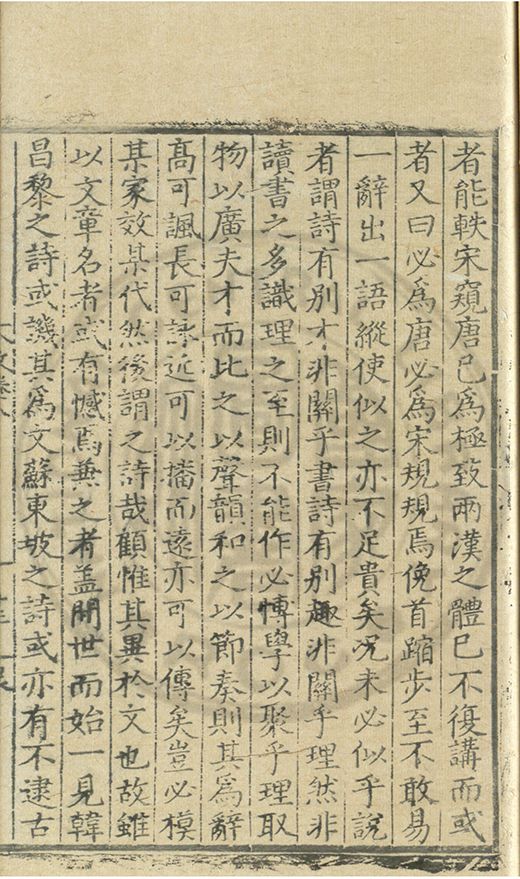 者能軼宋窺唐已爲極致兩漢之體已不復講而或
者又曰必爲唐必爲宋規規焉俛首蹜步至不敢易
一辭出一語縱使似之亦不足貴矣况未必似乎說
者謂詩有別才非關乎書詩有別趣非關乎理然非
讀書之多識理之至則不能作必慱學以聚乎理取
物以廣夫才而比之以聲韻和之以節奏則其爲辭
髙可諷長可詠近可以播而遠亦可以傳矣豈必模
某家效某代然後謂之詩哉顧惟其異於文也故雖
以文章名者或有憾焉兼之者盖間世而始一見韓
昌黎之詩或譏其爲文蘇東坡之詩或亦有不逮古